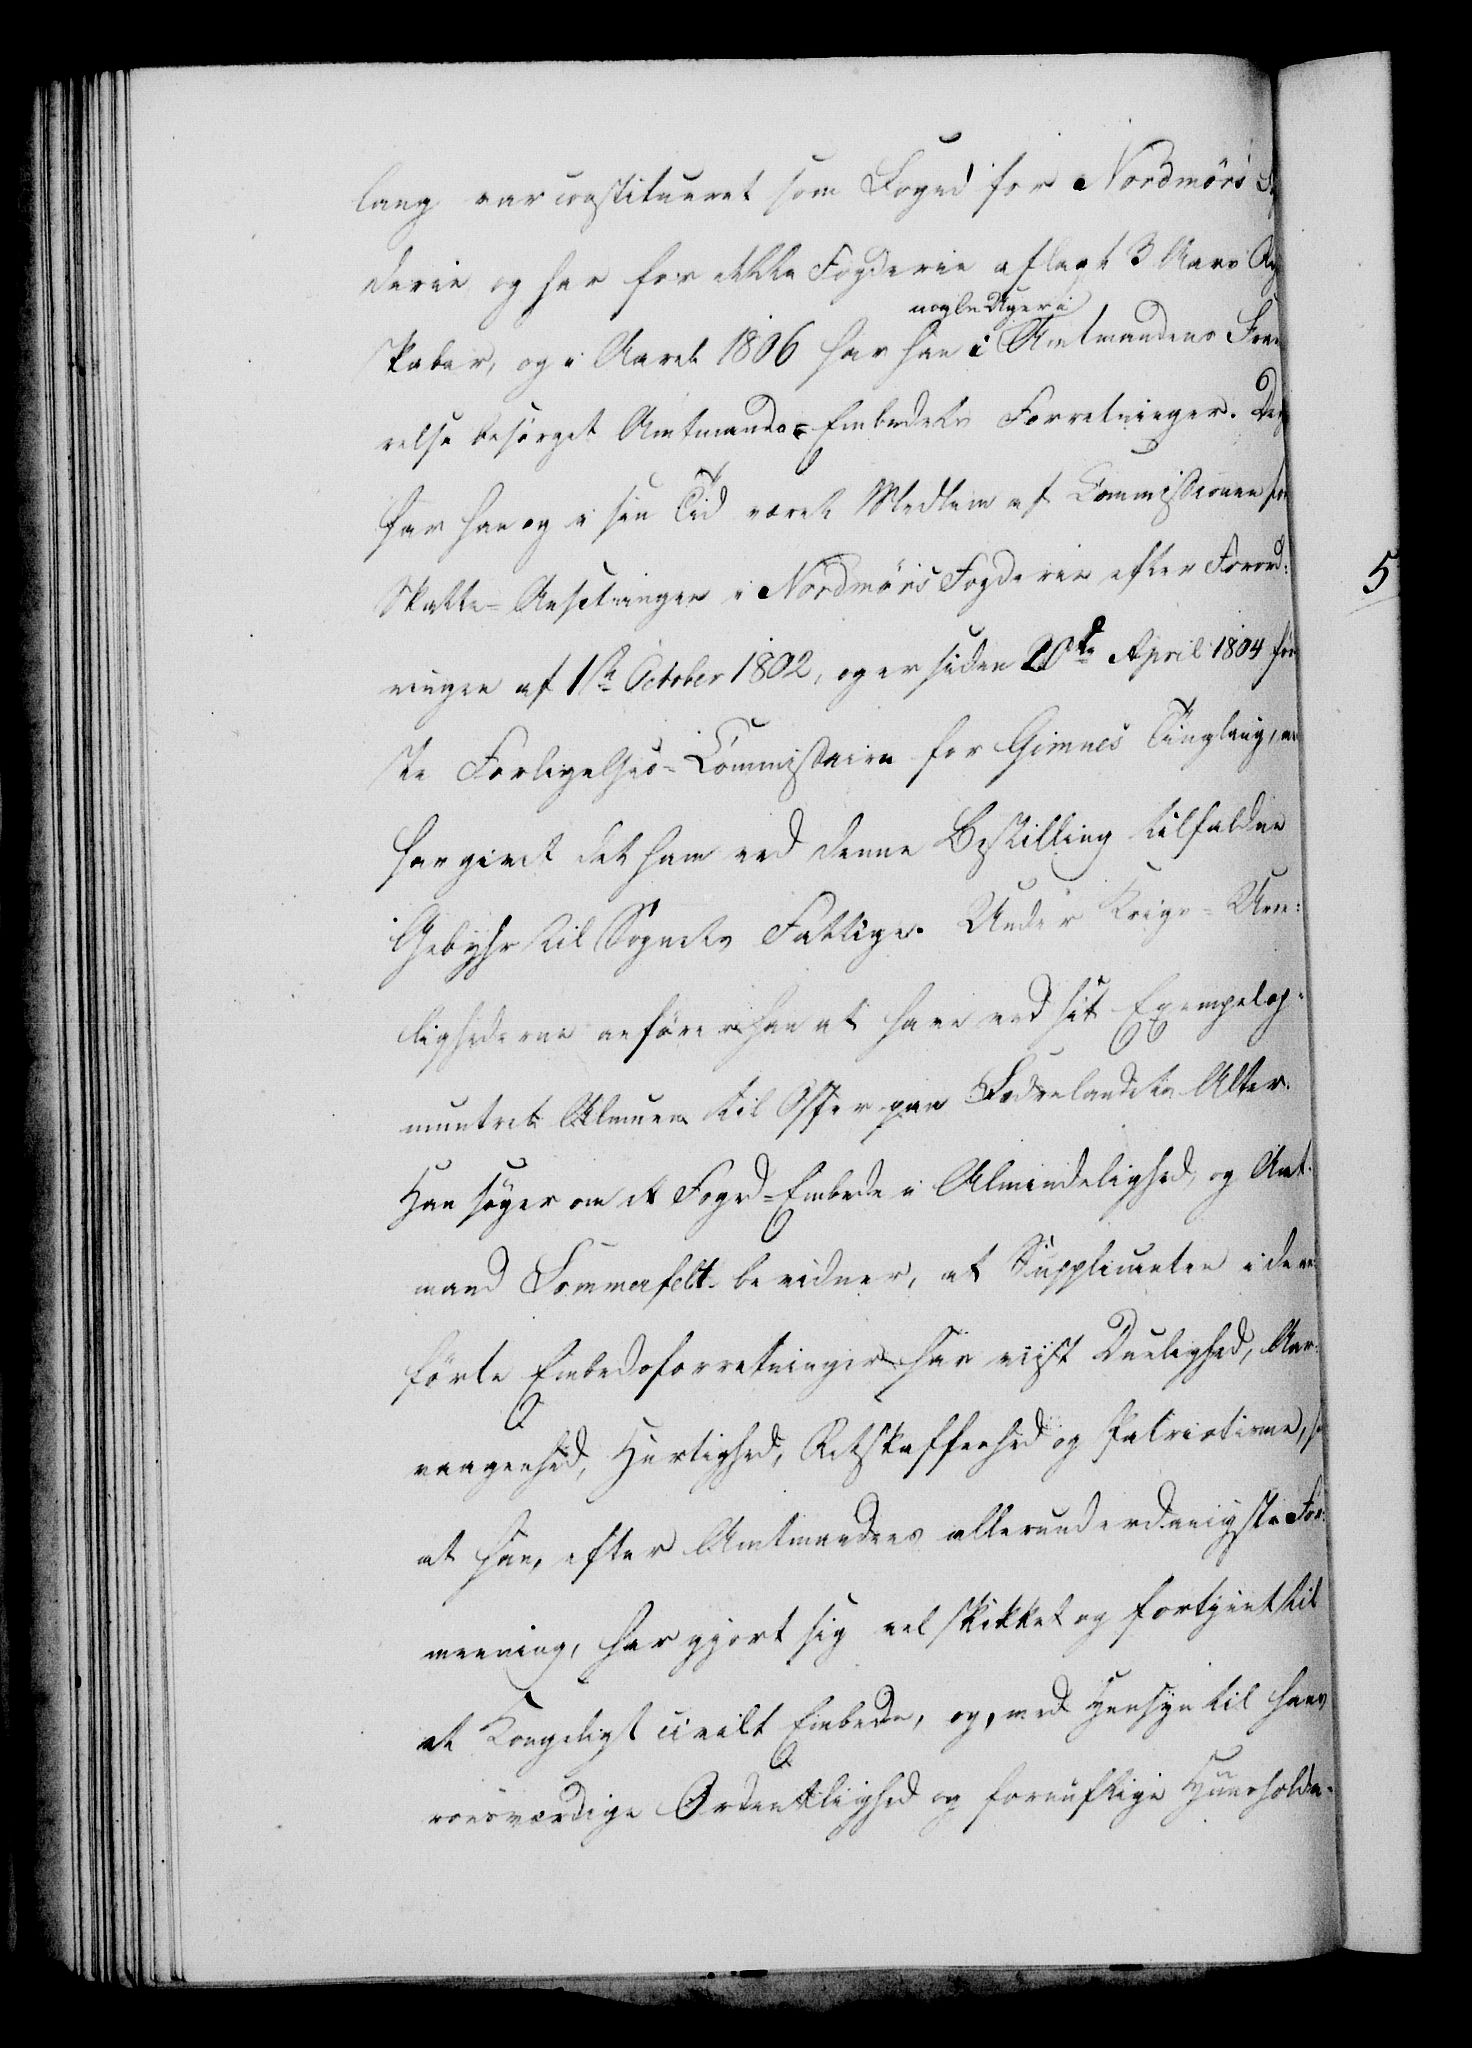 lang var constitueret som Foged for Nordmörs
derie og har for dette Fogderie aflagt 3 Aars
nogle Uger i
skaber, og i Aaret 1806 har han i Amtmandens
relse besörget Amtmands-Embedets Forretninger.
har han og i sin Tid været Medlem af Commissionen
Skatte-Ansetningen i Nordmörs Fogderie efter Forord:
ningen af 1ste October 1802, og er siden 20de April 1804
ste Forligelses-Commissair for Gimnes Tinglaug,
har givet det ham ved denne Bestilling tilfaldne
Gebyhr til Sognets Fattige. Under Krigs-Uroe:
lighederne anförer han at have ved sit Exempel op:
muntret Almuen til Offer paa Fædrelandets Alter.
Han söger om et Foged-Embede i Almindelighed, og Amt:
mand Sommerfelt bevidner, at Supplicanten i de an:
förte Embedsforretninger har viist Duelighed, Aar:
vaagenhed, Hurtighed, Retskaffenhed og Patriotisme,
at han, efter Amtmandens allerunderdanigste For:
meening, har gjort sig vel skikket og fortjent til
et Kongeligt civilt Embede, og, med Hensyn til hans
roesværdige Ordentlighed og fornuftige Huusholde-
5